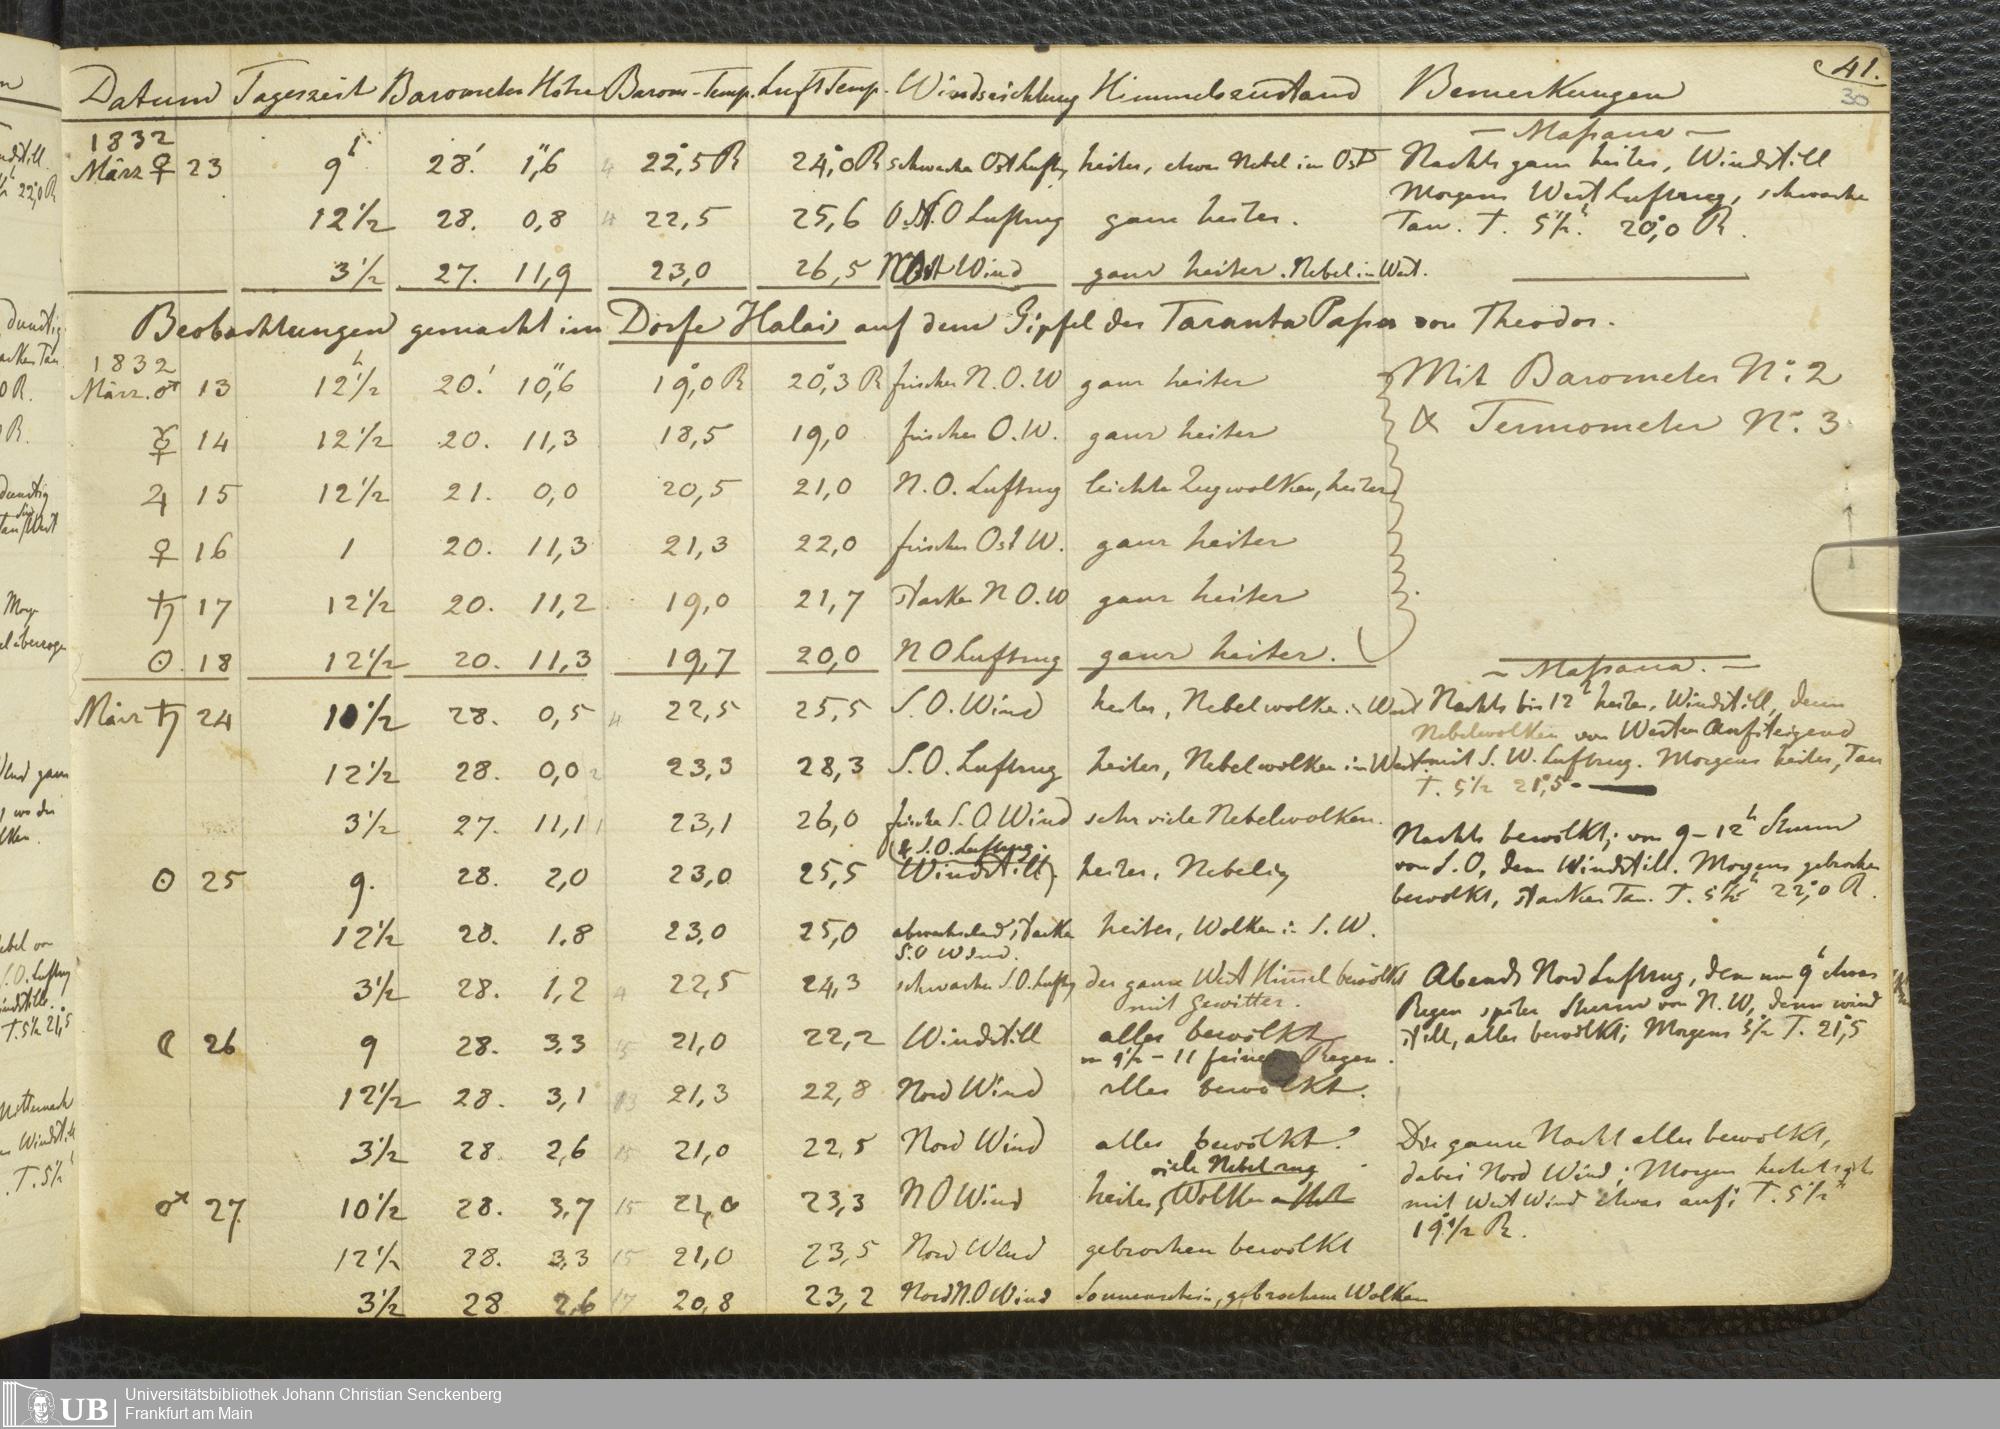 41.
30
Datum Tageszeit Barometer Höhe Barom-Temp. Luft Temp. Windrichtung Himmelszustand Bemerkungen
1832 — Massaua —
März ♀ 23 9h 28.' 1,"6 4 22,°5 R 24,°0 R schwacher Ost Luftzug heiter, etwas Nebel im Ost Nachts ganz heiter, Windstill
Morgens West Luftzug, schwacher
12 1/2 28. 0,8 4 22,5 25,6 O.N.O Luftzug ganz heiter. Tau. T. 5 1/2 h. 20,°0 R.
3 1/2 27. 11,9 23,0 26,5 Wind ganz heiter. Nebel in West.
Beobachtungen gemacht im Dorfe Halai auf dem Gipfel des Taranta Passes von Theodor.
1832
März. ♂ 13 12 1/2 h 20.' 10,"6 19,°0 R 20,°3 R frischer N.O.W ganz heiter Mit Barometer No: 2
☿ 14 12 1/2 20. 11,3 18,5 19,0 frischer O.W. ganz heiter & Termometer No. 3
♃ 15 12 1/2 21. 0,0 20,5 21,0 N.O. Luftzug leichte Zugwolken, heiter
♀ 16 1 20. 11,3 21,3 22,0 frischer Ost W. ganz heiter
♄ 17 12 1/2 20. 11,2 19,0 21,7 starker N O.W ganz heiter
☉. 18 12 1/2 20. 11,3 19,7 20,0 N O Luftzug ganz heiter.
— Massaua. —
März ♄ 24 10 1/2 28. 0,5 4 22,5 25,5 S.O. Wind heiter, Nebelwolken in West Nachts bis 12h heiter, Windstill, dann
Nebelwolken von Westen Aufsteigend
12 1/2 28. 0,0 2 23,3 28,3 S.O. Luftzug heiter, Nebelwolken im West. mit S.W. Luftzug. Morgens heiter, Tau
T. 5 1/2 21,°5
3 1/2 27. 11,1 1 23,1 26,0 frischer S.O. Wind sehr viele Nebelwolken.
Nachts bewölkt; von 9–12h Sturm
(& S.O. Luftzug.
☉ 25 9. 28. 2,0 23,0 25,5 Windstill) heiter, Nebelig von S.O, dann Windstill. Morgens gebrochen
bewölkt, starker Tau. T. 5 1/2 h 22,°0 R.
12 1/2 28. 1,8 23,0 25,0 abwechselnd starker heiter, Wolken in S.W.
S.O Wind.
3 1/2 28. 1,2 4 22,5 24,3 schwacher S.O. Luftzug der ganze West Himmel bewölkt Abends Nord Luftzug, dann um 9h etwas
mit Gewitter. Regen später Sturm von N.W, dann wind
☾ 26 9 28. 3,3 15 21,0 22,2 Windstill alles bewölkt still, alles bewölkt; Morgens 5 1/2 T. 21,°5
von 9 1/2 – 11 feiner Regen.
12 1/2 28. 3,1 13 21,3 22,8 Nord Wind alles bewölkt.
3 1/2 28. 2,6 15 21,0 22,5 Nord Wind alles bewölkt. Die ganze Nacht alles bewölkt,
viele Nebel zug dabei Nord Wind; Morgen
♂ 27. 10 1/2 28. 3,7 15 21,0 23,3 N O Wind heiter, Wolken mit West Wind etwas auf; T. 5 1/2 h
19 1/2° R.
12 1/2 28. 3,3 15 21,0 23,5 Nord Wind gebrochen bewölkt
3 1/2 28 2,6 17 20,8 23,2 Nord N.O Wind Sonnenschein, gebrochene Wolken
UB Universitätsbibliothek Johann Christian Senckenberg
Frankfurt am Main